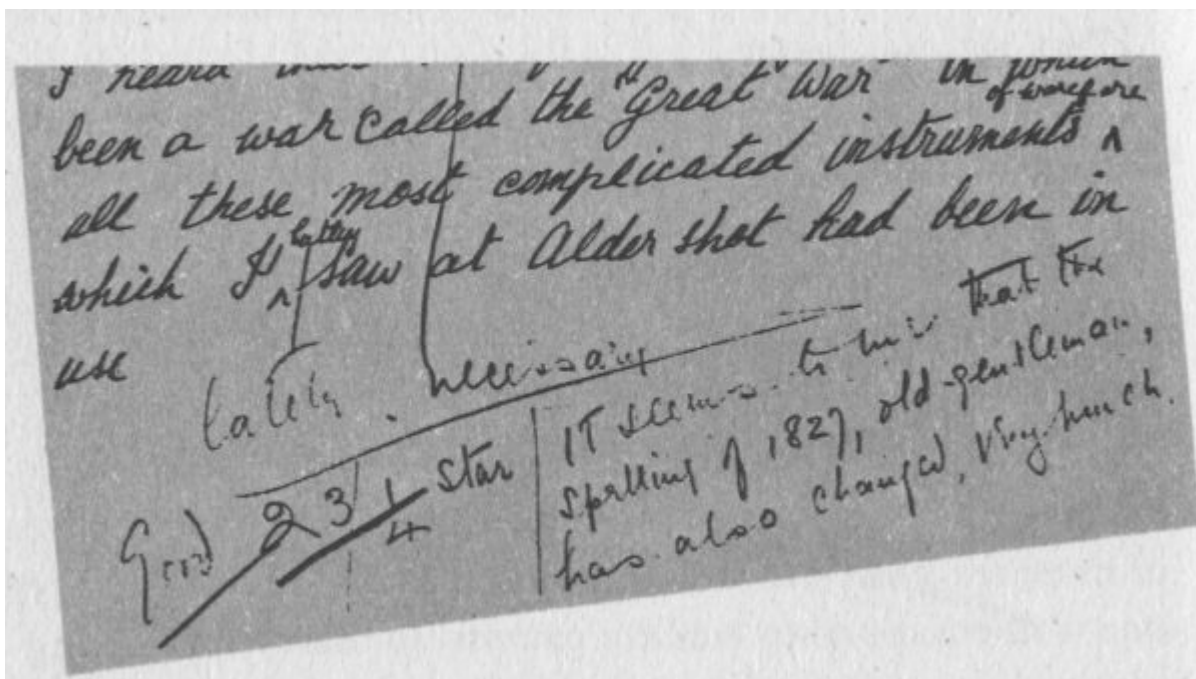 I heard
been a war called the "Great War" in which
of warefare
all these most complicated instruments ^
latley
which I ^ saw at Alder shot had been in
use
lately. necessary
Good 23 1/4 Star
It seems to me that the
spelling of 1827, old gentleman,
has also changed, very much.